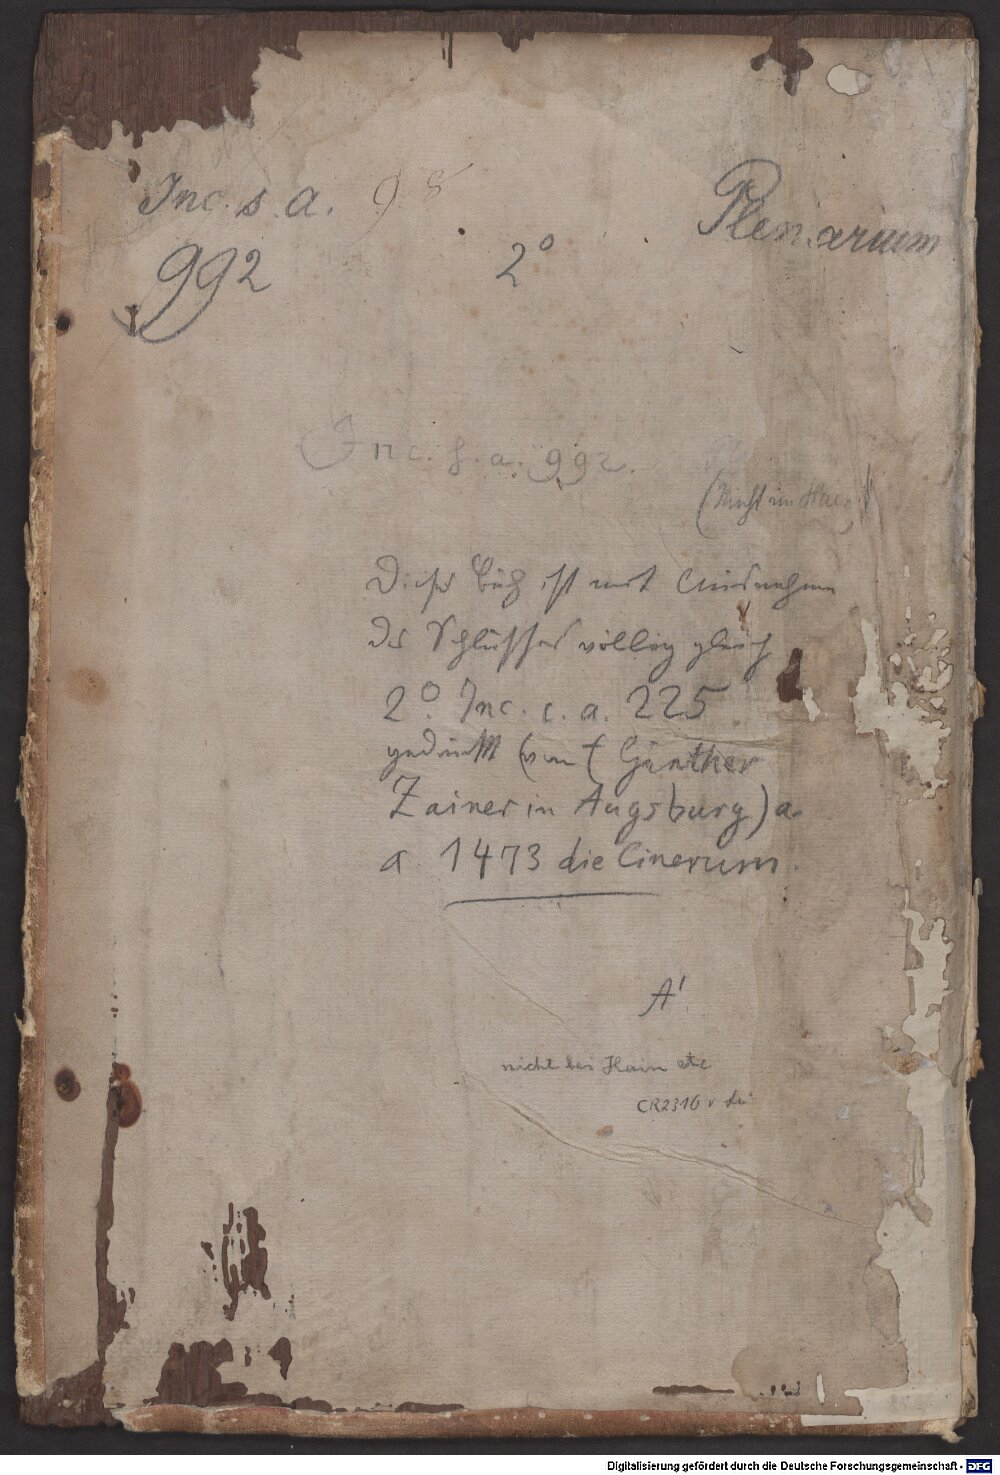 Inc. s. a. 98
Plenarium
992
2°
Inc. s. a. 992.
(Nicht im Hain)
Dieses Buch ist mit Ausnahme
des Schlusses völlig gleich
2° Inc. c. a. 225
gedruckt (von Günther
Zainer in Augsburg) a.
a 1473 die Cinerum.
A'
nicht bei Hain etc
CR2316
Digitalisierung gefördert durch die Deutsche Forschungsgemeinschaft - DFG